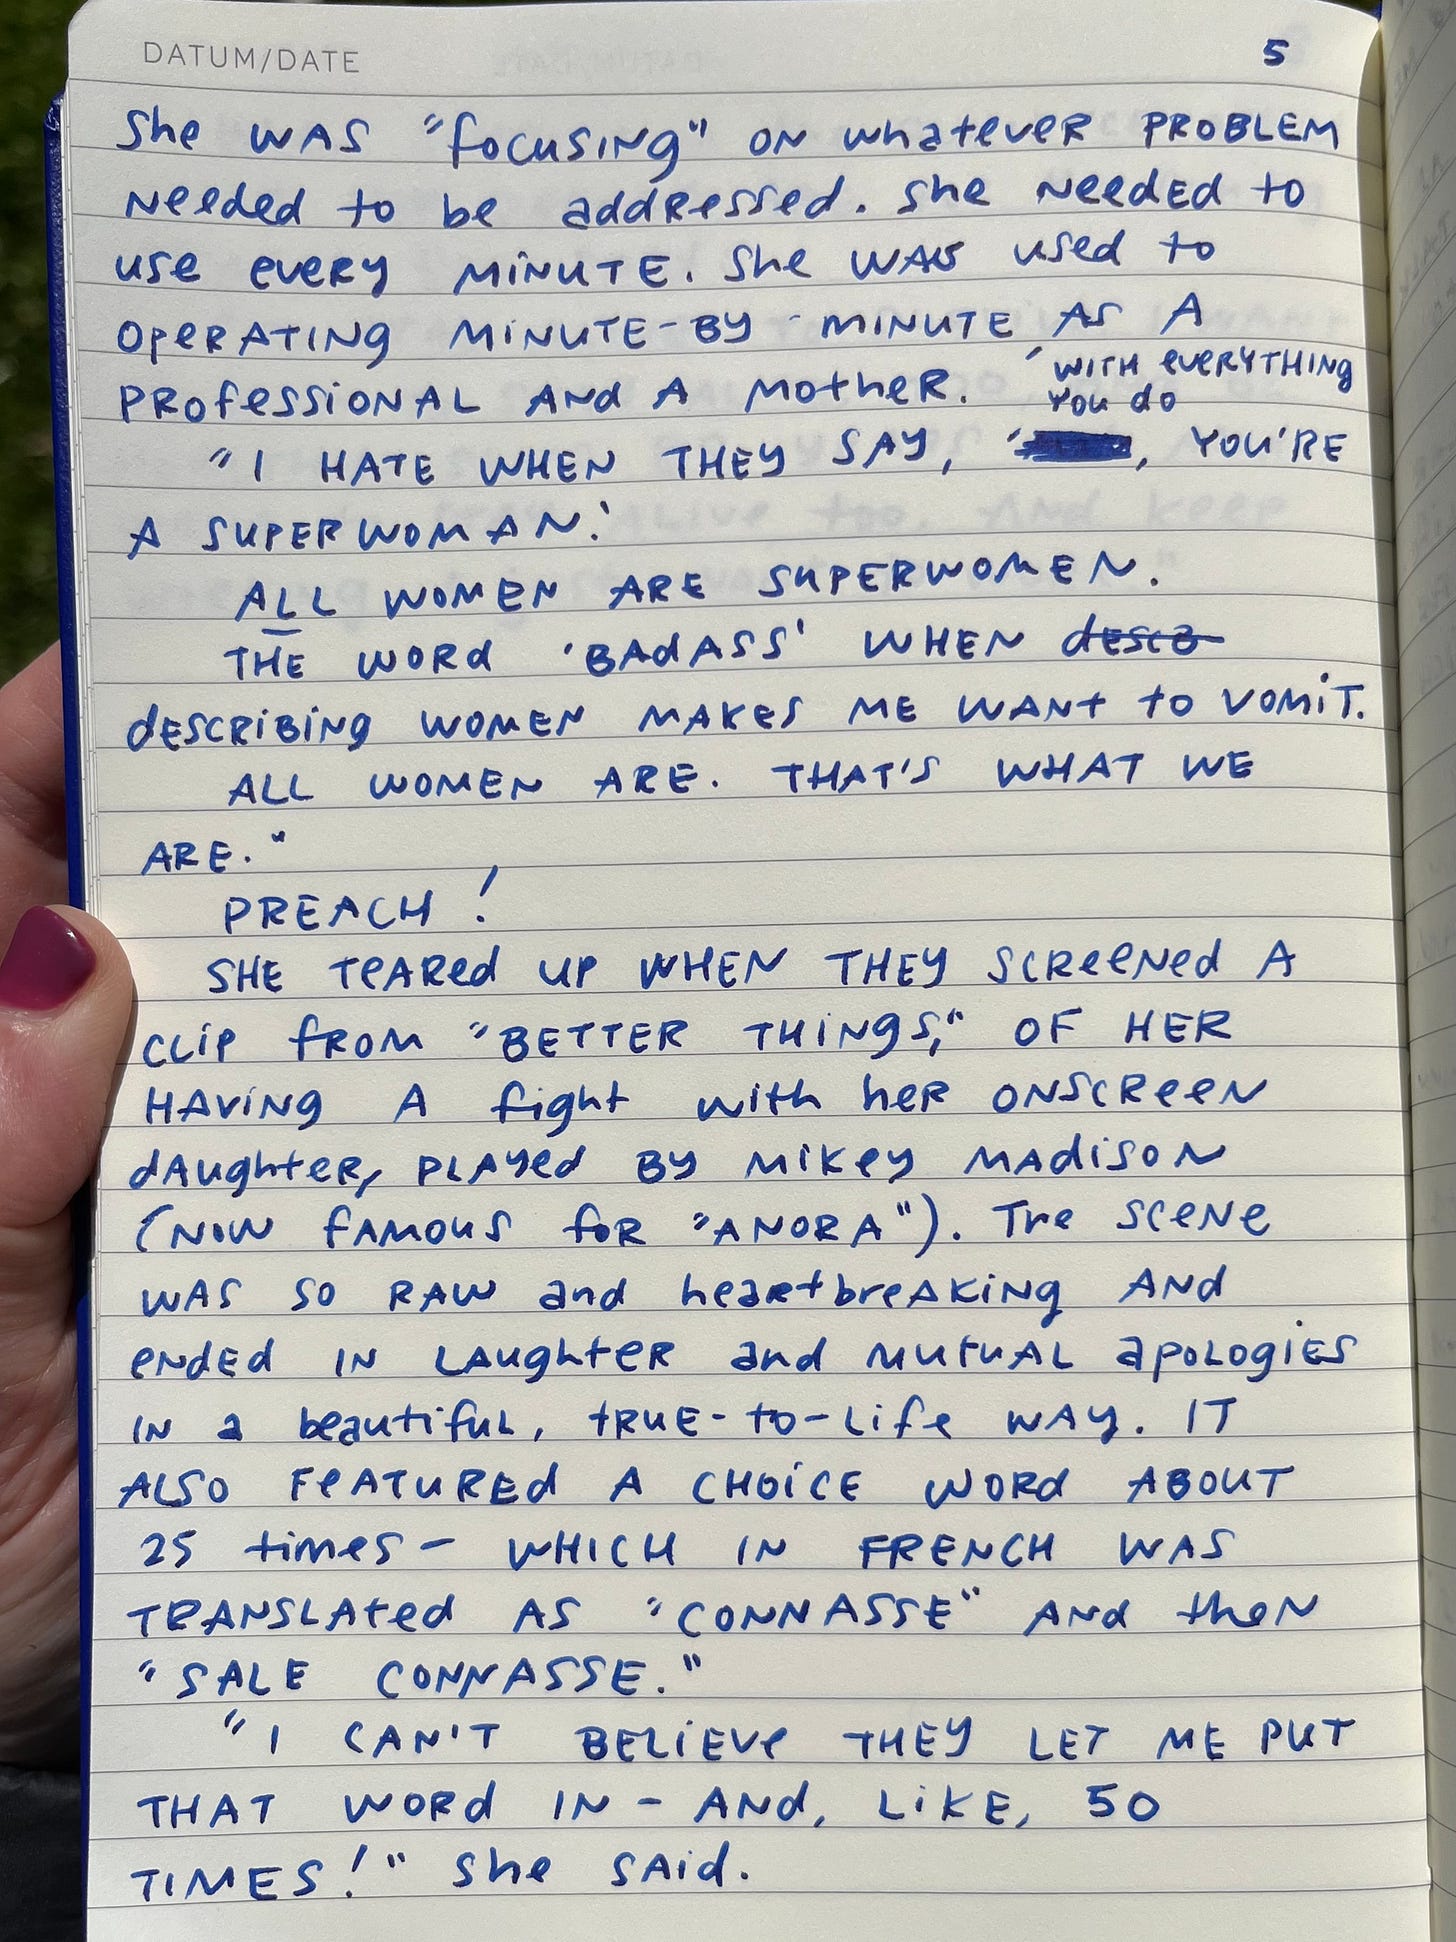 DATUM/DATE 5
She WAS "focusing" ON whatever PROBLEM
Needed to be addressed. She Needed to
use every MINUTE. She WAS used to
OperATING MINUTE-BY-MINUTE AS A
PROfessiONAL ANd A Mother. 'WITH everYTHING
You do
"I HATE WHEN THEY SAY, ', YOU'RE
A SUPERWOMAN.'
ALL WOMEN ARE SUPERWOMEN.
THE WORD 'BADASS' WHEN descb
describing WOMEN MAKES ME WANT to VOMIT.
ALL WOMEN ARE. THAT'S WHAT WE
ARE."
PREACH!
SHE TeARed UP WHEN THEY SCReeNed A
CLIP fROM "BETTER THINGS," OF HER
HAVING A fight with her ONSCReeN
dAughter, PLAYed BY Mikey MAdisON
(NOW fAMOUS foR "ANORA"). The sceNe
WAS SO RAW and heartbreAKiNg ANd
eNded IN LAughteR and MUTUAL apoLogies
IN a beautifuL, tRUE-to-Life WAY. IT
ALSO FeATUREd A CHOICE WORd ABOUT
25 times - WHICH IN FRENCH WAS
TRANSLAted AS "CONNASSE" ANd theN
"SALE CONNASSE."
"I CAN'T BELIEVe THEY LET ME PUT
THAT WORd IN - ANd, LIKE, 50
TIMES!" she SAid.